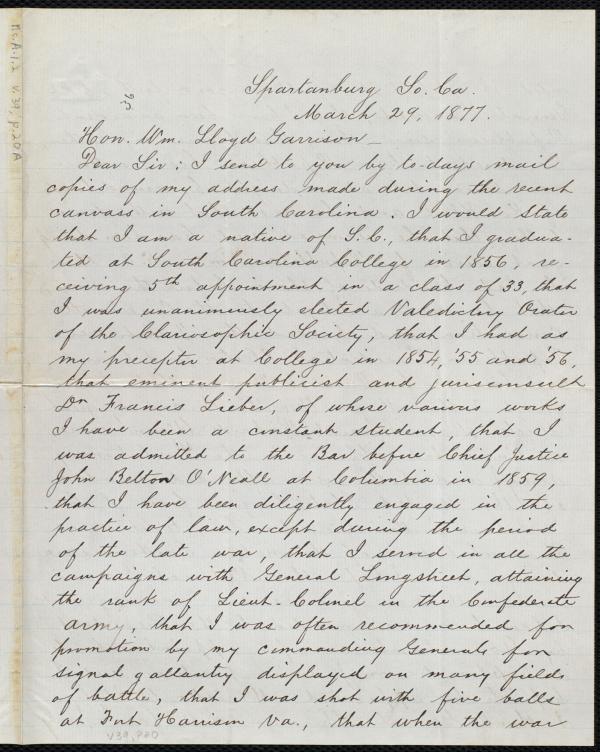 Ms.A.1.2 v.39, p.20A
56
Spartanburg So. Ca.
March 29, 1877.
Hon. Wm. Lloyd Garrison —
Dear Sir: I send to you by to-days mail
copies of my address made during the recent
canvass in South Carolina. I would state
that I am a native of S.C., that I gradua-
ted at South Carolina College in 1856, re-
ceiving 5th appointment in a class of 33, that
I was unanimously elected Valedictory Orator
of the Clariosophic Society, that I had as
my preceptor at College in 1854, '55 and '56,
that eminent publicist and jurisconsult
Dr Francis Lieber, of whose various works
I have been a constant student, that I
was admitted to the Bar before Chief Justice
John Belton O'Neall at Columbia in 1859,
that I have been diligently engaged in the
practice of law, except during the period
of the late war, that I served in all the
campaigns with General Longstreet, attaining
the rank of Lieut-Colonel in the Confederate
army, that I was often recommended for
promotion by my commanding Generals for
signal gallantry displayed on many fields
of battle, that I was shot with five balls
at Fort Harrison Va., that when the war
V39, P20